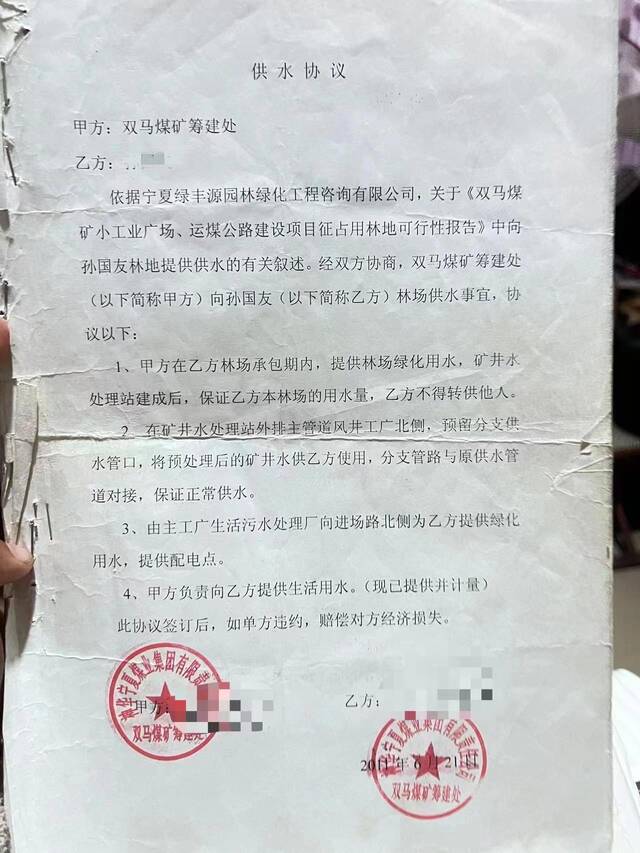 供水协议
甲方：双马煤矿筹建处
乙方：
依据宁夏绿丰源园林绿化工程咨询有限公司，关于《双马煤
矿小工业广场、运煤公路建设项目征占用林地可行性报告》中向
孙国友林地提供供水的有关叙述。经双方协商，双马煤矿筹建处
（以下简称甲方）向孙国友（以下简称乙方）林场供水事宜，协
议以下：
1、甲方在乙方林场承包期内，提供林场绿化用水，矿井水
处理站建成后，保证乙方本林场的用水量，乙方不得转供他人。
2、在矿井水处理站外排主管道风井工广北侧，预留分支供
水管口，将预处理后的矿井水供乙方使用，分支管路与原供水管
道对接，保证正常供水。
3、由主工广生活污水处理厂向进场路北侧为乙方提供绿化
用水，提供配电点。
4、甲方负责向乙方提供生活用水。（现已提供并计量）
此协议签订后，如单方违约，赔偿对方经济损失。
神华宁夏煤业集团有限责
双马煤矿筹建处
甲方：
乙方：
2011年6月21日
神华宁夏煤业集团有限责任公司
双马煤矿筹建处